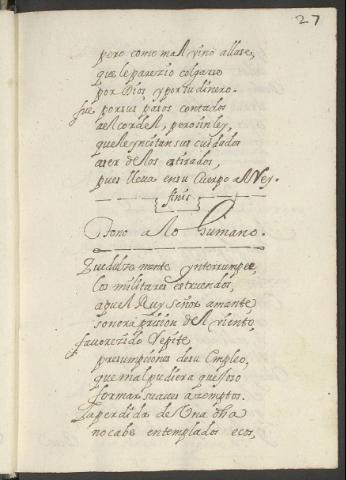 27
pero como mal vino allase,
que le parezio colgarse
por Dios y por tu dinero.
fue por sus pasos contados
al cordel, pero sin ley,
que le yncitan sus cuidados
a ser de los estirados,
pues lleva en su Cuerpo al Rey.
finis
Tono a lo humano.
Que dulze mente ynterrumpe,
los militares estruendos,
aquel Ruy señor amante
sonora prision del viento,
favorezido Repite
presumpciones de su Empleo,
que mal pudiera quexoso
formar suaves azentos.
La perdida de Una dha
no cabe en templados ecos,